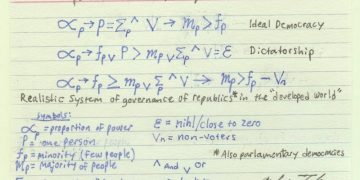 ∝p → P = Σp ^ V → mp > fp Ideal Democracy
∝p → fp v P > mp v Σp ^ V = ℰ Dictatorship
∝p → fp ≥ mp v Σp ^ V → mp > fp - Vn
Realistic System of governance of republics* in the "developed world"
Symbols:
∝p = proportion of power
P = one person
fp = minority (few people)
mp = majority of people
ℰ = nihl/close to zero
Vn = non-voters
^ And v or
*Also parlamentary democracies